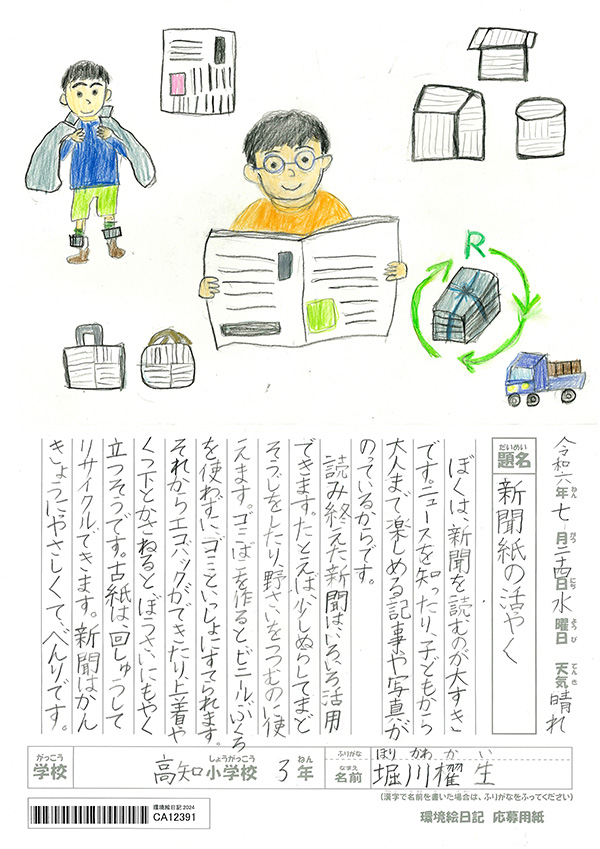 R
令和六年七月二十四日水曜日 天気晴れ
ねん がつ にち ようび てんき
だいめい
題名 新聞紙の活やく
ぼくは、新聞を読むのが大すき
です。ニュースを知ったり、子どもから
大人まで楽しめる記事や写真が
のっているからです。
読み終えた新聞は、いろいろ活用
できます。たとえば、少しぬらしてまど
そうじをしたり、野さいをつつむのに使
えます。ゴミばこを作るとビニールぶくろ
を使わずに、ゴミといっしょにすてられます。
それからエコバックができたり、上着や
くつ下とかさねるとぼうさいにもやく
立つそうです。古紙は、回しゅうして
リサイクルできます。新聞はかん
きょうにやさしくて、べんりです。
がっこう
学校
しょうがっこう ねん
高知小学校 3年
ふりがな ほり かわ かい
なまえ
名前 堀川櫂生
(漢字で名前を書いた場合は、ふりがなをふってください)
環境絵日記 2024
CA12391
環境絵日記 応募用紙